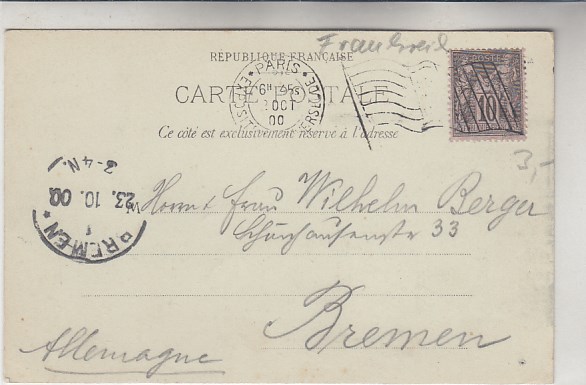 Frankreich
RÉPUBLIQUE FRANÇAISE
CARTE POSTALE
Ce côté est exclusivement réservé à l'adresse
PARIS
OCT
00
POSTES
10
3,-
3-4 N.
23. 10. 00
BREMEN
Herrn & Frau Wilhelm Berger
33
Bremen
Allemagne